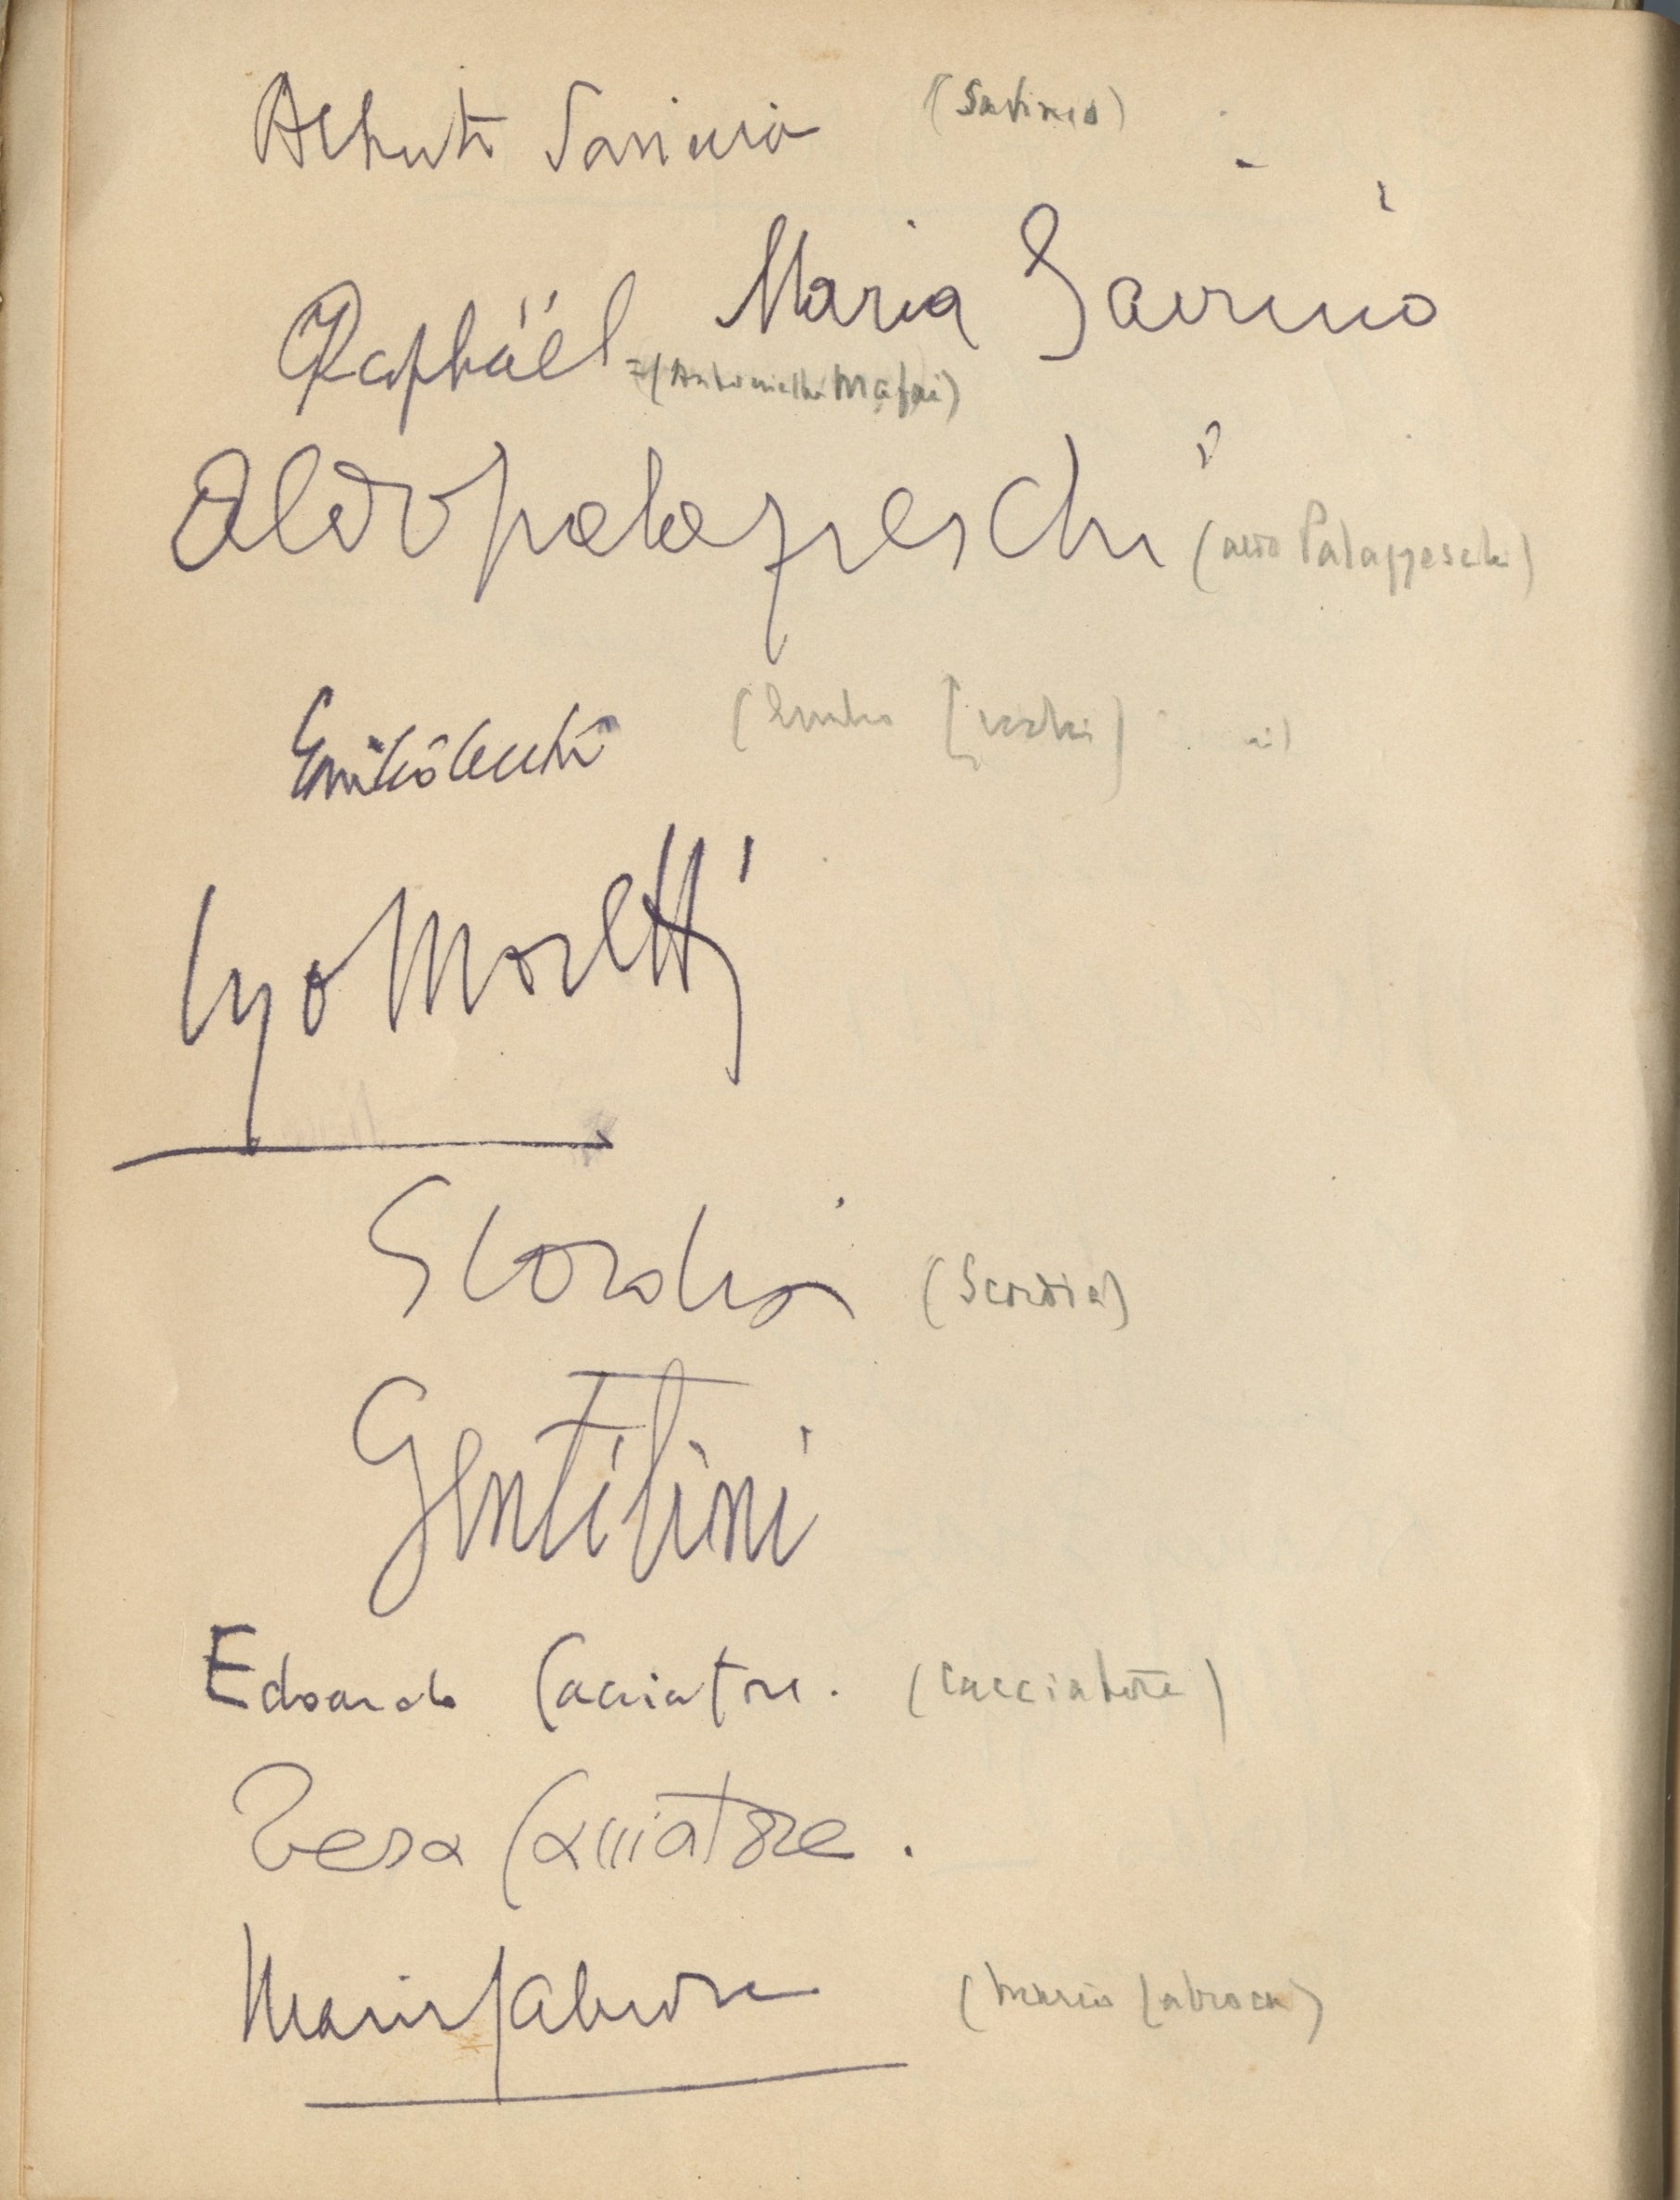 Alberto Savinio (Savinio)
Maria Savinio
Raphäël = (Antonietta Mafai)
Aldo Palazzeschi (Aldo Palazzeschi)
Emilio Cecchi (Emilio Cecchi)
Ugo Moretti
Scordia (Scordia)
Gentilini
Edoardo Cacciatore. (Cacciatore)
Vera Cacciatore.
Mario Labroca (Mario Labroca)